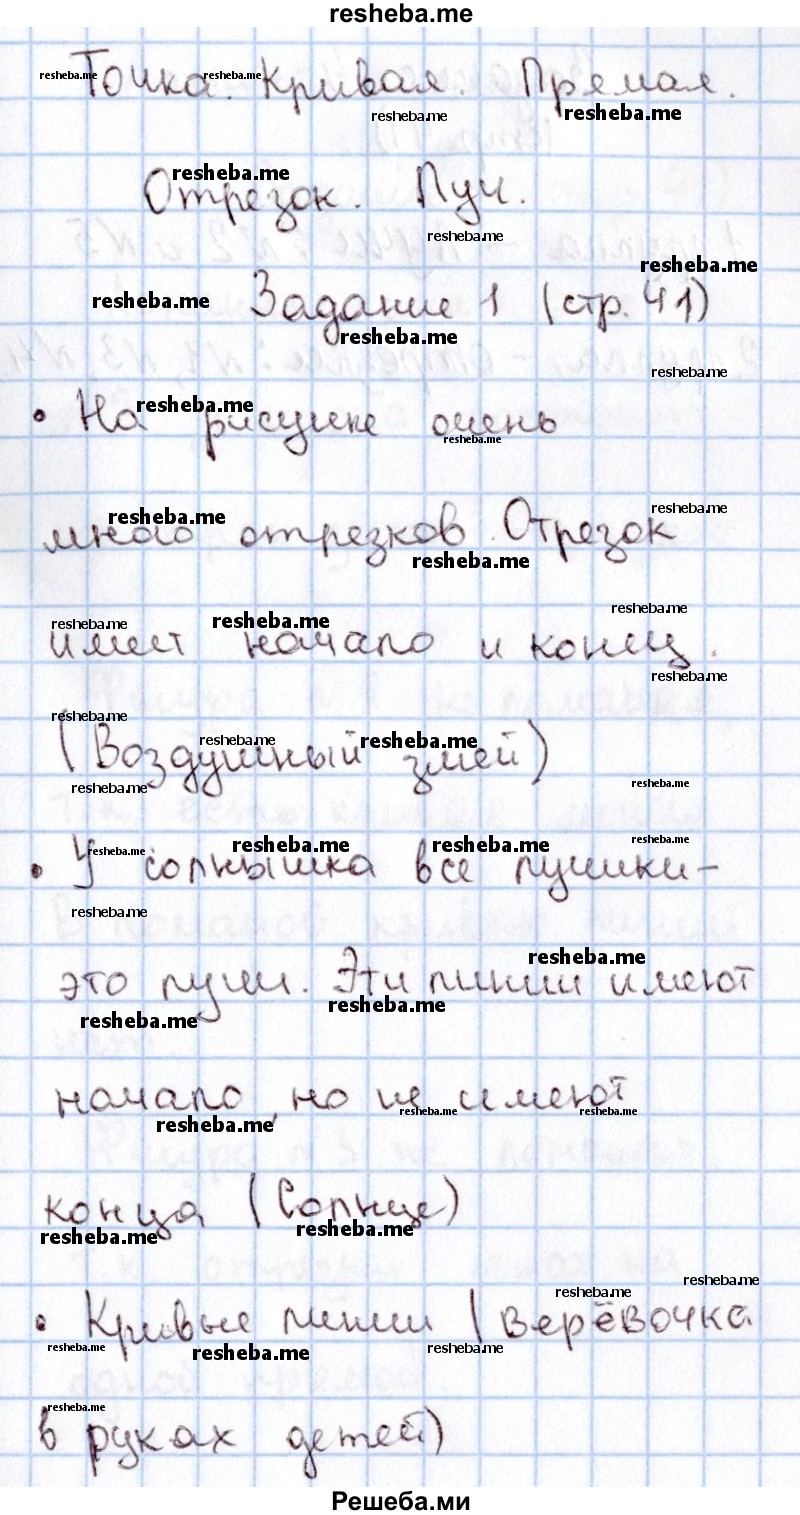 resheba.me
Точка. Кривая. Прямая.
Отрезок. Луч.
Задание 1 (стр. 41)
• На рисунке очень
много отрезков. Отрезок
имеет начало и конец.
(Воздушный змей)
• У солнышка все лучики –
это лучи. Эти линии имеют
начало, но не имеют
конца (Солнце)
• Кривые линии (верёвочка
в руках детей)
Решеба.ми